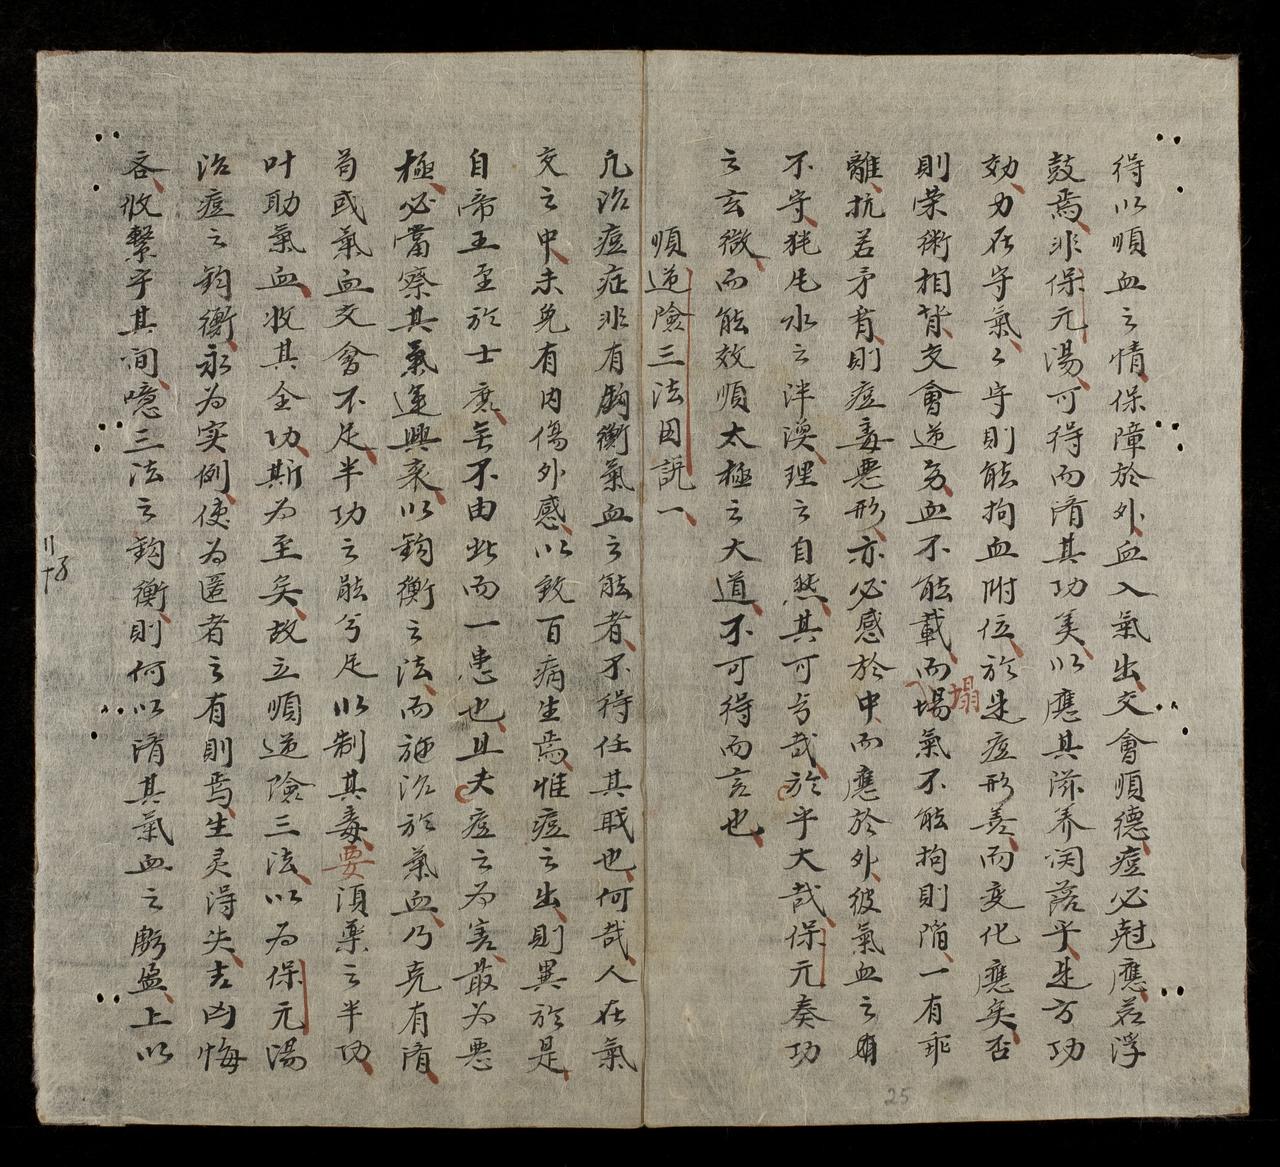 得以順血之情保障於外血入氣出交會順德痘必尅應若浮
鼓焉非保元湯可得而済其功美以應其滋养闰蓓乎是方功
効力在守氣〻守則能拘血附位於是痘形善而变化應矣否
則荣衛相背交會逆务血不能載而塌氣不能拘則陷一有乖
離抗若矛盾則痘毒悪形亦必感於中而應於外彼氣血之
不守犹氏水之泮渙理之自然其可与哉於乎大哉保元奏功
之玄微而能效順太極之大道不可得而言也
順逆險三法因説一
凢治痘症非有鈎衡氣血之能者不得任其戝也何哉人在氣
交之中未免有内傷外感以致百病生焉惟痘之出則異於是
自帝王至於士庶無不由此而一患也且夫痘之为害最为悪
極必當察其氣運興衰以鈞衡之法而施治於氣血乃克有済
苟或氣血交會不足半功之能兮足以制其毒要湏藥之半功
叶助氣血收其全功斯为至矣故立順逆險三法以为保元湯
治痘之鈞衡永为实例使为匿者之有則焉生灵得失吉凶悔
吝攸繫乎其间噫三法之鈎衡則何以済其氣血之虧盈上以
塌
25